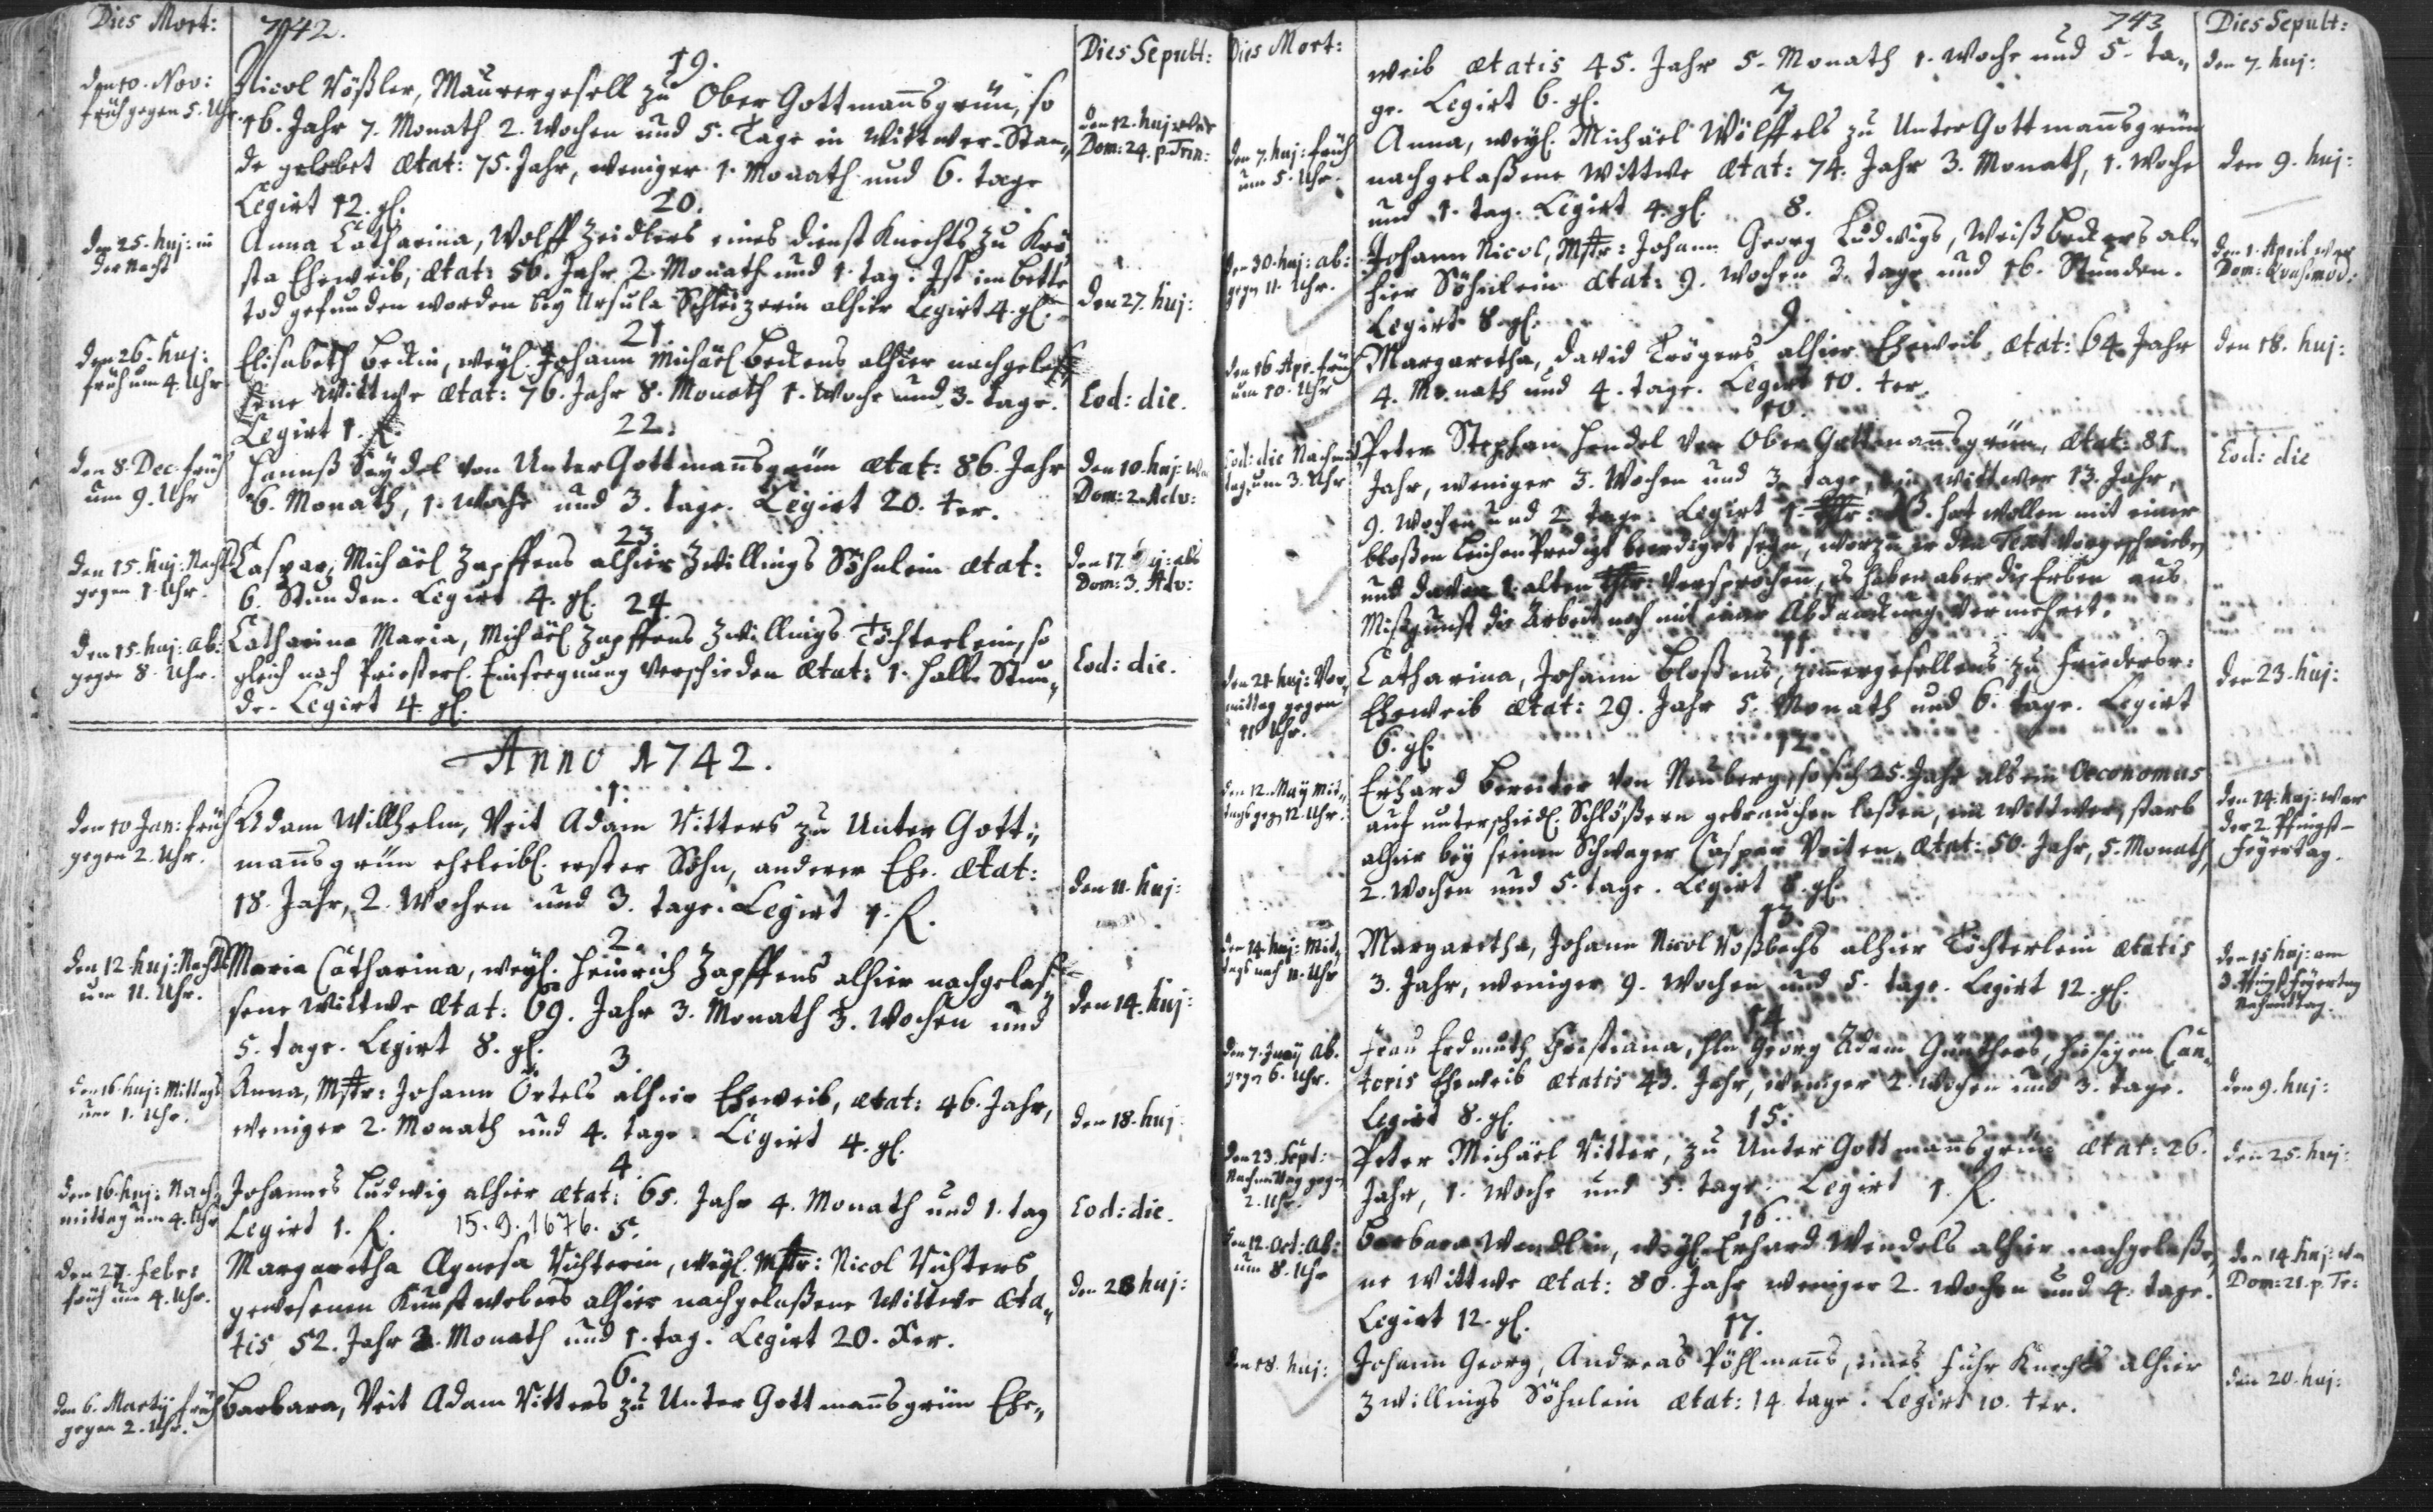 Dies Mort:
742.
Dies Sepult:
19.
den 10. Nov:
früh gegen 5. Uhr.
Nicol Vößler, Maurergesell zu Ober Gottmañsgrün, so
16. Jahr 7. Monath 2. Wochen und 5. Tage in Wittwer-Stan„
de gelebet ætat: 75. Jahr, weniger 1. Monath und 6. tage
Legirt 12. gl.
den 12. huj: war
Dom: 24. p. Trin:
20.
den 25. huj: in
der Nacht
Anna Catharina, Wolff Zeidlers eines dienst Knechts zu Krö„
sta Eheweib, ætat: 56. Jahr 2. Monath und 1. tag. Ist im Bette
tod gefunden worden bey Ursula Schleizerin alhier Legirt 4. gl.
den 27. huj:
21.
den 26. huj:
früh um 4. Uhr
Elisabeth Beckin, weyl. Johann Michäel Beckens alhier nachgelaß„
sene Wittwe ætat: 76. Jahr 8. Monath 1. Woche und 3. tage.
Legirt 1. f.
Eod: die.
22.
den 8. Dec. früh
um 9. Uhr
Hannß Seydel von Unter Gottmañsgrün ætat: 86. Jahr
6. Monath, 1. Woche und 3. tage. Legirt 20. ter.
den 10. huj: war
Dom: 2. Adv:
23.
den 15. huj: Nachts
gegen 1. Uhr.
Caspar, Michäel Zapffens alhier Zwillings Söhnlein ætat:
6. Stunden. Legirt 4. gl.
den 17. huj: als
Dom: 3. Adv:
24.
den 15. huj: Ab:
gegen 8. Uhr.
Catharina Maria, Michäel Zapffens Zwillings Töchterlein, so
gleich nach Priesterl. Einseegnung verschieden ætat: 1. halbe Stun„
de. Legirt 4. gl.
Eod: die.
Anno 1742.
1.
den 10 Jan: früh
gegen 2. Uhr.
Adam Willhelm, Veit Adam Vitters zu Unter Gott„
mañsgrün eheleibl. erster Sohn, anderer Ehe. ætat:
18. Jahr, 2. Wochen und 3. tage. Legirt 1. f.
den 11. huj:
2.
den 12. huj: Nachts
um 11. Uhr.
Maria Catharina, weyl. Heinrich Zapffens alhier nachgelaß„
sene Wittwe ætat: 69. Jahr 3. Monath 3. Wochen und
5. tage. Legirt 8. gl.
den 14. huj:
3.
den 16. huj: Mittags
um 1. Uhr.
Anna, Mstr: Johann Örtels alhier Eheweib, ætat: 46. Jahr,
weniger 2. Monath und 4. tage. Legirt 4. gl.
den 18. huj:
4.
den 16. huj: Nach„
mittag um 4. Uhr
Johannes Ludwig alhier ætat: 65. Jahr 4. Monath und 1. tag
Legirt 1. f. 15.9.1676.
Eod: die.
5.
den 27. Febr:
früh um 4. Uhr.
Margaretha Agnesa Richterin, weyl. Mstr: Nicol Richters
gewesenen Kunstwebers alhier nachgelaßene Wittwe æta„
tis 52. Jahr 3. Monath und 1. tag. Legirt 20. Xer.
den 28 huj:
6.
den 6. Martij früh
gegen 2. Uhr.
Barbara, Veit Adam Vitters zu Unter Gottmañsgrün Ehe„
Dies Mort:
743
Dies Sepult:
weib ætatis 45. Jahr 5. Monath 1. Woche und 5. ta„
ge. Legirt 6. gl.
den 7. huj:
7.
den 7. huj: früh
um 5. Uhr.
Anna, weyl. Michäel Wölffels zu Unter Gottmañsgrün
nachgelaßene Wittwe ætat: 74. Jahr 3. Monath, 1. Woche
und 1. tag. Legirt 4. gl.
den 9. huj:
8.
den 30. huj: ab:
gegn 11. Uhr.
Johann Nicol, Mstr: Johann Georg Ludwigs, Weißbeckers al„
hier Söhnlein ætat: 9. Wochen 3. tage und 16. Stunden.
Legirt 8. gl.
den 1. April war
Dom: Quasimod:
9.
den 16. Apr. früh
um 10. Uhr
Margaretha, David Trögers alhier Eheweib ætat: 64. Jahr
4. Monath und 4. tage. Legirt 10. ter.
den 18. huj:
10.
Eod: die Nachmit„
tags um 3. Uhr.
Peter Stephan Hendel von Ober Gottmañsgrün, ætat: 81
Jahr, weniger 3. Wochen und 3. tage, ein Wittwer 13. Jahr,
9. Wochen und 2. tage. Legirt 1. hat wollen mit einer
bloßen LeichenPredigt beerdiget seyn, worzu er den Text vorgeschrieben
und davon 1. alten thlr: versprochen, es haben aber die Erben aus
Mißgunst die Arbeit noch mit einer Abdanckung vermehret.
Eod: die
11.
den 21 huj: Vor„
mittag gegen
11 Uhr.
Catharina, Johann Bloßens, Zimergesellens zu Friedersr:
Eheweib ætat: 29. Jahr 5. Monath und 6. tage. Legirt
6. gl.
den 23. huj:
12.
den 12. May Mit„
tags gegn 12. Uhr.
Erhard Bereiter von Neuberg, so sich 25. Jahr als ein Oeconomus
auf unterschiedl. Schlößern gebrauchen laßen, ein Wittwer, starb
alhier bey seinem Schwager Caspar Veiten, ætat: 50. Jahr, 5. Monath,
2. Wochen und 5. tage. Legirt 8. gl.
den 14. huj: war
der 2. Pfingst-
Feyertag.
13.
den 14. huj: Mit„
tags nach 11. Uhr
Margaretha, Johann Nicol Voßbachs alhier Töchterlein ætatis
3. Jahr, weniger 9. Wochen und 5. tage. Legirt 12. gl.
den 15 huj: am
3. Pfingst Feyertag
Nachmittag.
14.
den 7. Juny Ab.
gegn 6. Uhr.
Frau Erdmuth Christiana, Hln Georg Adam Günthers, hiesigen Can„
toris Eheweib ætatis 43. Jahr, weniger 2. Wochen und 3. tage.
Legirt 8. gl.
den 9. huj:
15.
den 23. Sept:
Nachmittag gegen
2. Uhr.
Peter Michäel Vitter, zu Unter Gottmañsgrün ætat: 26.
Jahr, 1. Woche und 5. tage. Legirt 1. f.
den 25. huj:
16.
den 12. Oct: Ab:
um 8. Uhr
Barbara Wendlin, weyl. Erhard Wendels alhier nachgelaße„
ne Wittwe ætat: 80. Jahr weniger 2. Wochen und 4. tage.
Legirt 12. gl.
den 14. huj: war
Dom: 21. p. Tr:
17.
den 18. huj:
Johann Georg, Andreas Pöhlmañs, eines Fuhr Knechts alhier
Zwillings Söhnlein ætat: 14. tage. Legirt 10. ter.
den 20. huj: